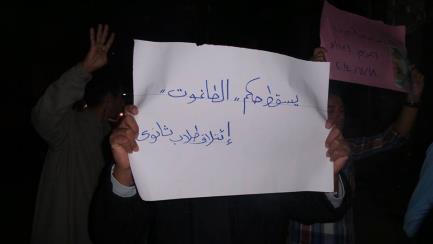 يسقط حكم "الطاغوت"
إئتلاف طلاب ثانوى